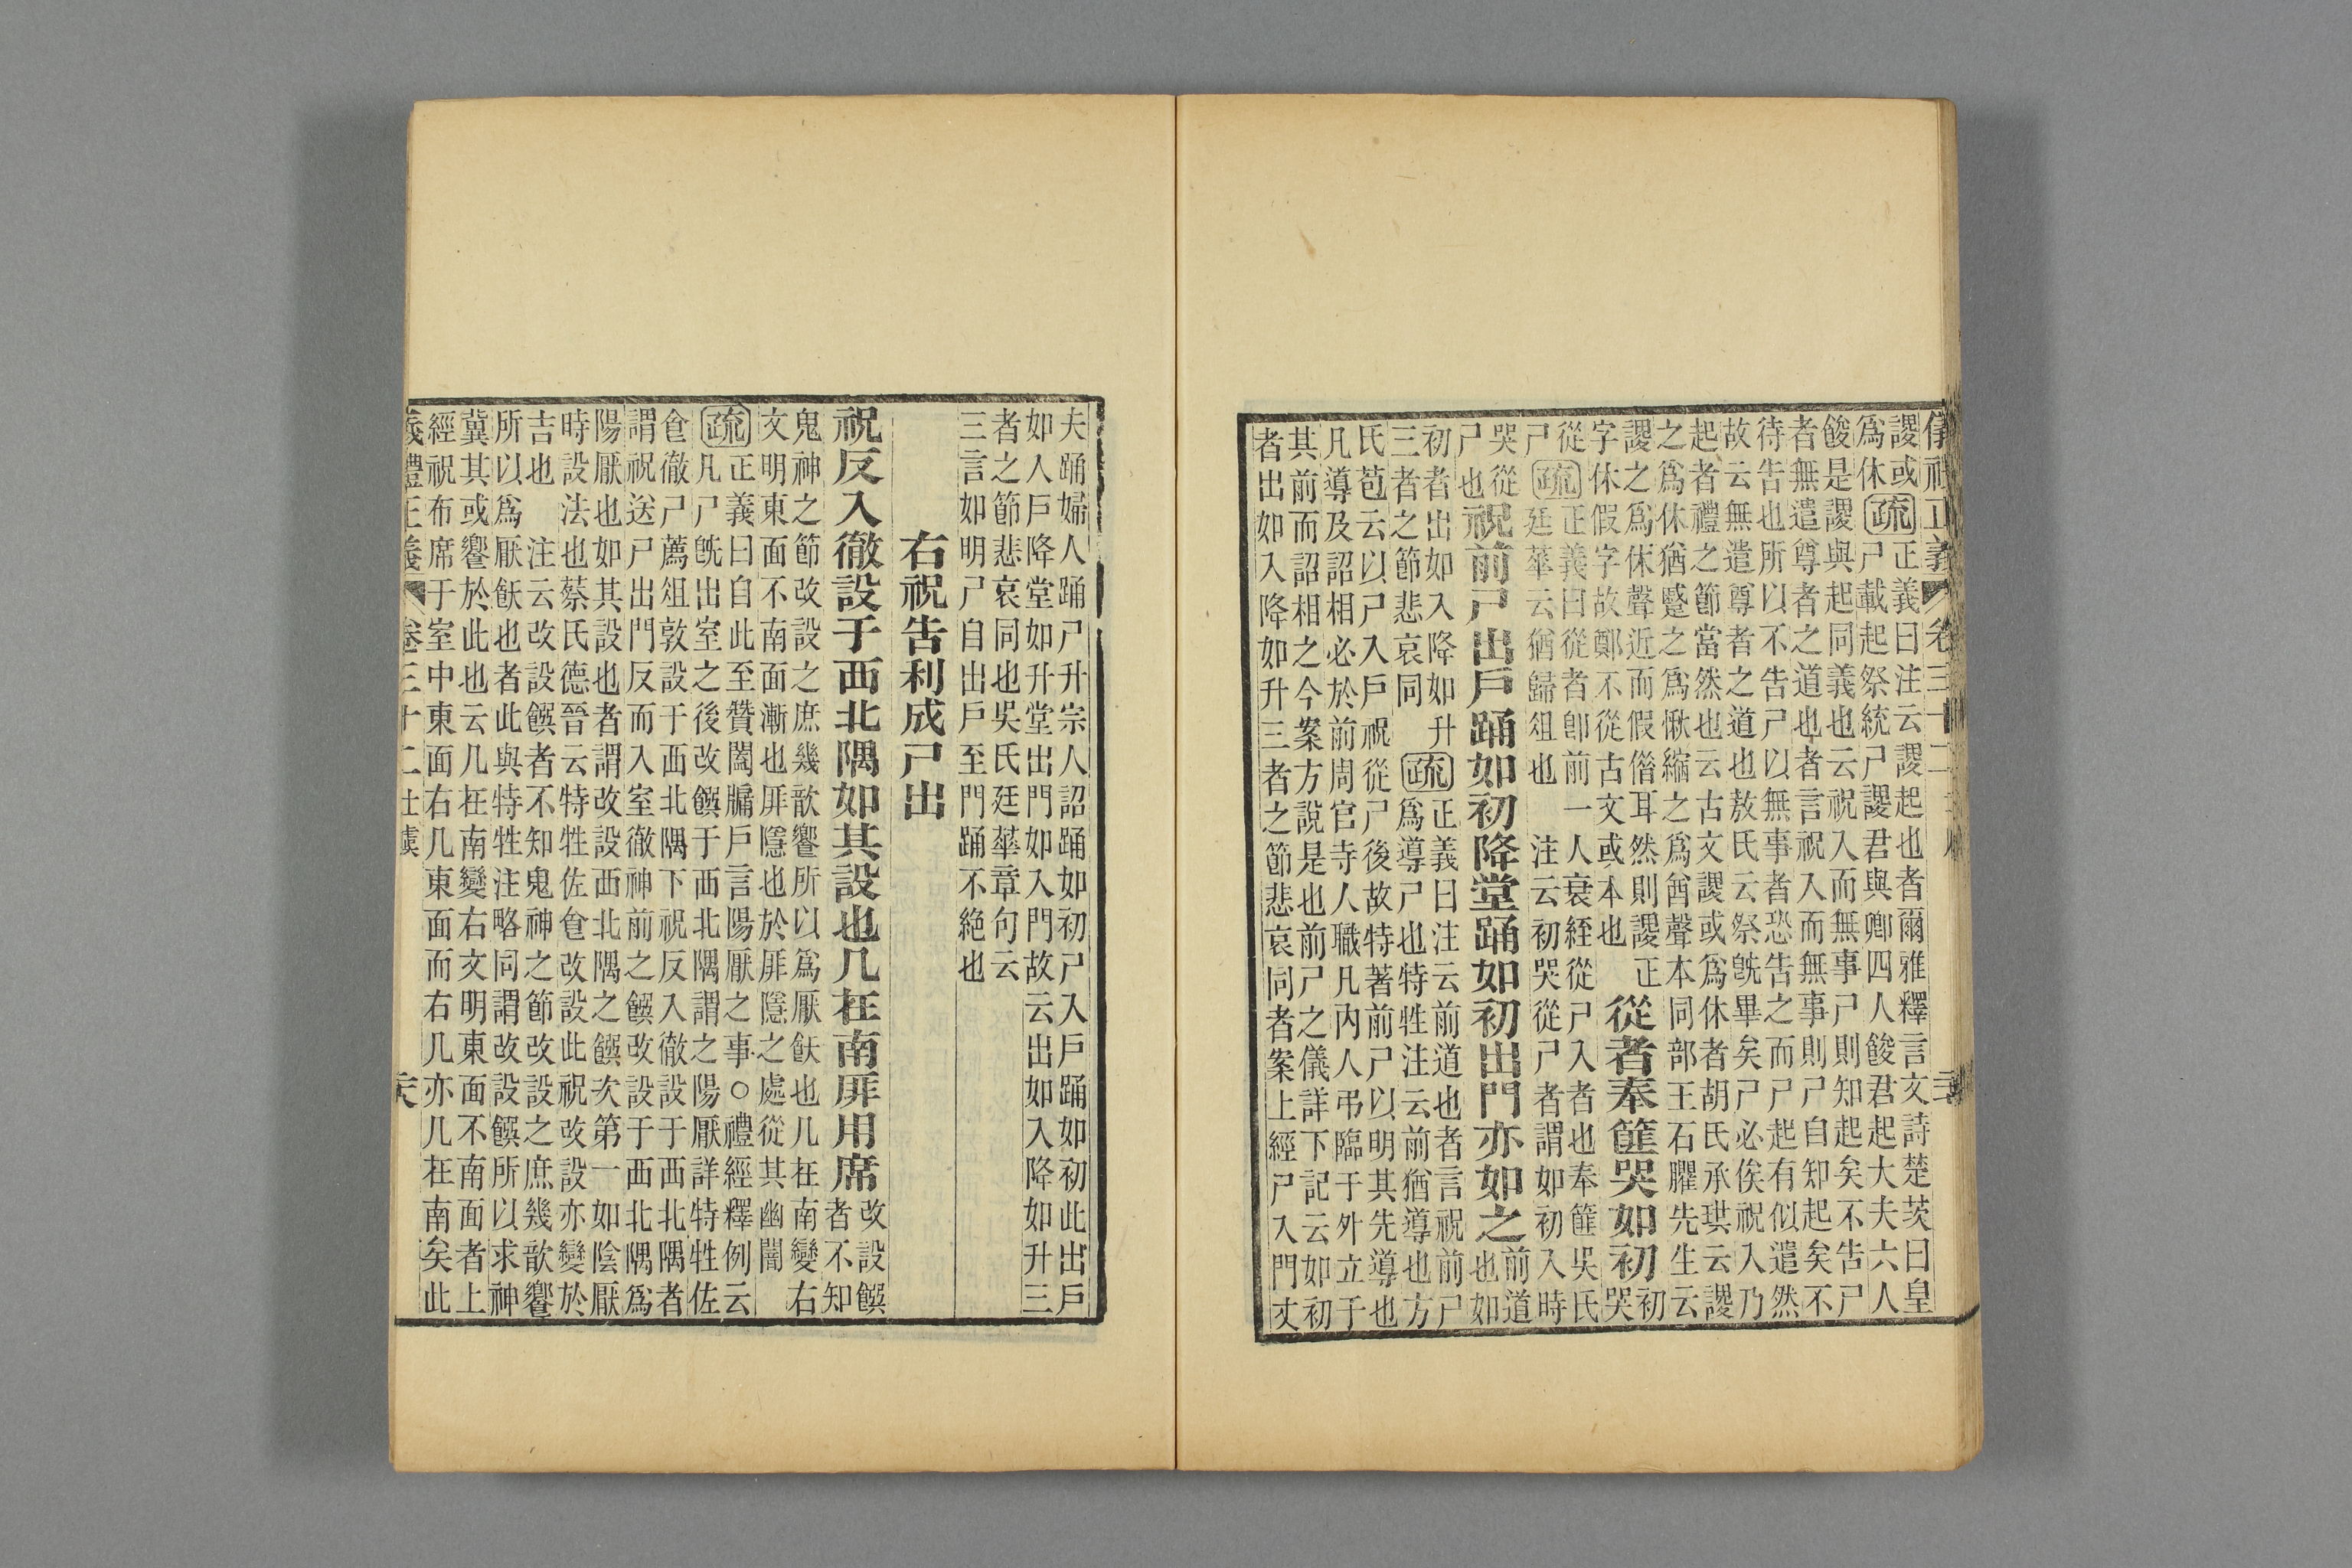 儀禮正義 卷三十二
謖或
爲休
疏
正義曰注云謖起也者爾雅釋言文詩楚茨曰皇
尸載起祭統尸謖君與卿四人餕君起大夫六人
餕是謖與起同義也云祝入而無事尸則知起矣不告尸
者無遣尊者之道也者言祝入而無事則尸自知起矣不
待告也所以不告尸以無事者恐告之而尸起有似遣然
故云無遣尊者之道也敖氏云祭旣畢矣尸必俟祝入乃
起者禮之節當然也云古文謖或爲休者胡氏承珙云謖
之爲休猶蹙之爲愀縮之爲酋聲本同部王石臞先生云
謖之爲休聲近而假偕耳然則謖正
字休假字故鄭不從古文或本也
從者奉篚哭如初
初
哭
從
尸
疏
正義曰從者卽前一人衰絰從尸入者也奉篚吳氏
廷華云猶歸俎也 注云初哭從尸者謂如初入時
哭從
尸也
祝前尸出戶踊如初降堂踊如初出門亦如之
前道
也如
初者出如入降如升
三者之節悲哀同
疏
正義曰注云前道也者言祝前尸
爲導尸也特牲注云前猶導也方
氏苞云以尸入戶祝從尸後故特著前尸以明其先導也
凡導及詔相必於前周官寺人職凡内人弔臨于外立于
其前而詔相之今案方說是也前尸之儀詳下記云如初
者出如入降如升三者之節悲哀同者案上經尸入門丈
夫踊婦人踊尸升宗人詔踊如初尸入戶踊如初此出戶
如人戶降堂如升堂出門如入門故云出如入降如升三
者之節悲哀同也吳氏廷華章句云
三言如明尸自出戶至門踊不絶也
右祝告利成尸出
祝反入徹設于西北隅如其設也几在南厞用席
改設饌
者不知
鬼神之節改設之庶幾歆饗所以爲厭飫也几在南變右
文明東面不南面漸也厞隱也於厞隱之處從其幽闇
疏
正義曰自此至贊闔牖戶言陽厭之事○禮經釋例云
凡尸旣出室之後改饌于西北隅謂之陽厭詳特牲佐
食徹尸薦俎敦設于西北隅下祝反入徹設于西北隅者
謂祝送尸出門反而入室徹神前之饌改設于西北隅爲
陽厭也如其設也者謂改設西北隅之饌次第一如陰厭
時設法也蔡氏德晉云特牲佐食改設此祝改設亦變於
吉也 注云改設饌者不知鬼神之節改設之庶幾歆饗
所以爲厭飫也者此與特牲注略同謂改設饌所以求神
冀其或饗於此也云几在南變右文明東面不南面者上
經祝布席于室中東面右几東面而右几亦几在南矣此
儀禮正義 卷三十二士虞